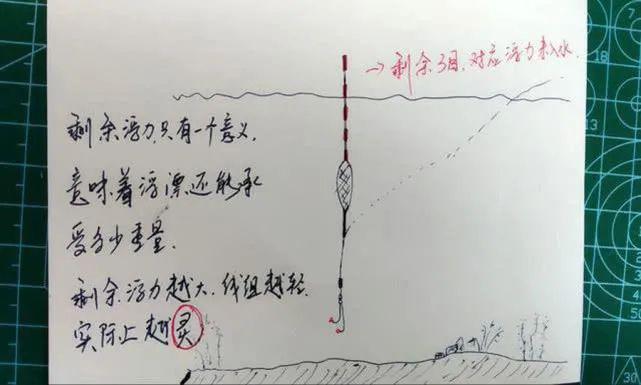 →剩余3目,对应浮力未入水.
剩余浮力只有一个意义,
意味着浮漂还能承
受多少重量.
剩余浮力越大,线组越轻.
实际上越灵
13
30